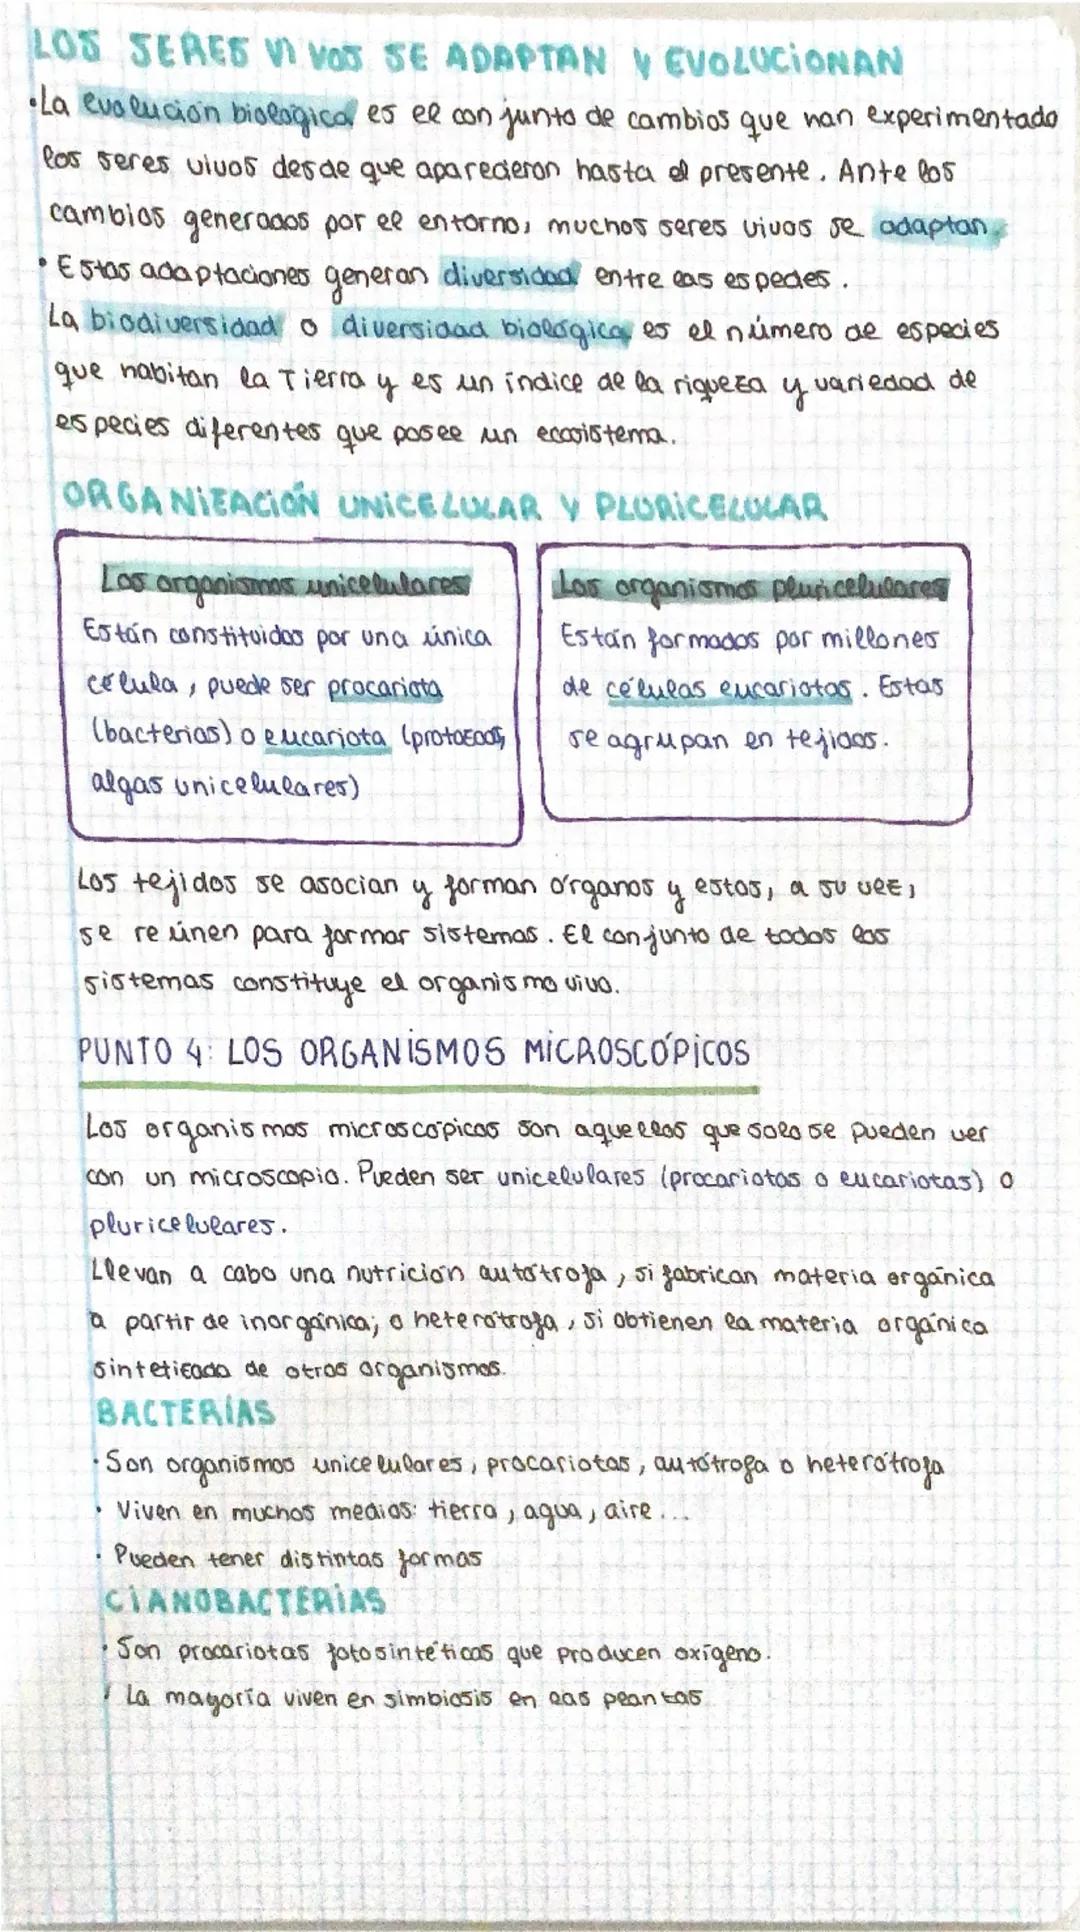 LOS SERES VIVOS SE ADAPTAN Y EVOLUCIONAN
·La evolución biológica es el conjunto de cambios que han experimentado
los seres vivos desde que aparecieron hasta el presente. Ante los
cambios generados por el entorno, muchos seres vivos se adaptan.
· Estas adaptaciones generan diversidad entre las especies.
La biodiversidad o diversidad biológica es el número de especies
que habitan la Tierra y es un índice de la riqueza y variedad de
especies diferentes que posee un ecosistema.
ORGANIZACIÓN UNICELULAR Y PLURICELULAR
Los organismos unicelulares
Están constituidos por una única
célula, puede ser procariota
(bacterias) o eucariota (protozoos,
algas unicelulares)
Los organismos pluricelulares
Están formados por millones
de células eucariotas. Estas
se agrupan en tejidos.
Los tejidos se asocian y forman órganos y estos, a su vez,
se reúnen para formar sistemas. El conjunto de todos los
sistemas constituye el organismo vivo.
PUNTO 4: LOS ORGANISMOS MICROSCÓPICOS
Los organismos microscópicos son aquellos que solo se pueden ver
con un microscopio. Pueden ser unicelulares (procariotas o eucariotas) o
pluricelulares.
Llevan a cabo una nutrición autótrofa, si fabrican materia orgánica
a partir de inorgánica; o heterótrofa, si obtienen la materia orgánica
sintetizada de otros organismos.
BACTERIAS
· Son organismos unicelulares, procariotas, autótrofa o heterótrofa
· Viven en muchos medios: tierra, agua, aire...
· Pueden tener distintas formas
CIANOBACTERIAS
· Son procariotas fotosintéticas que producen oxígeno.
· La mayoría viven en simbiosis en las plantas